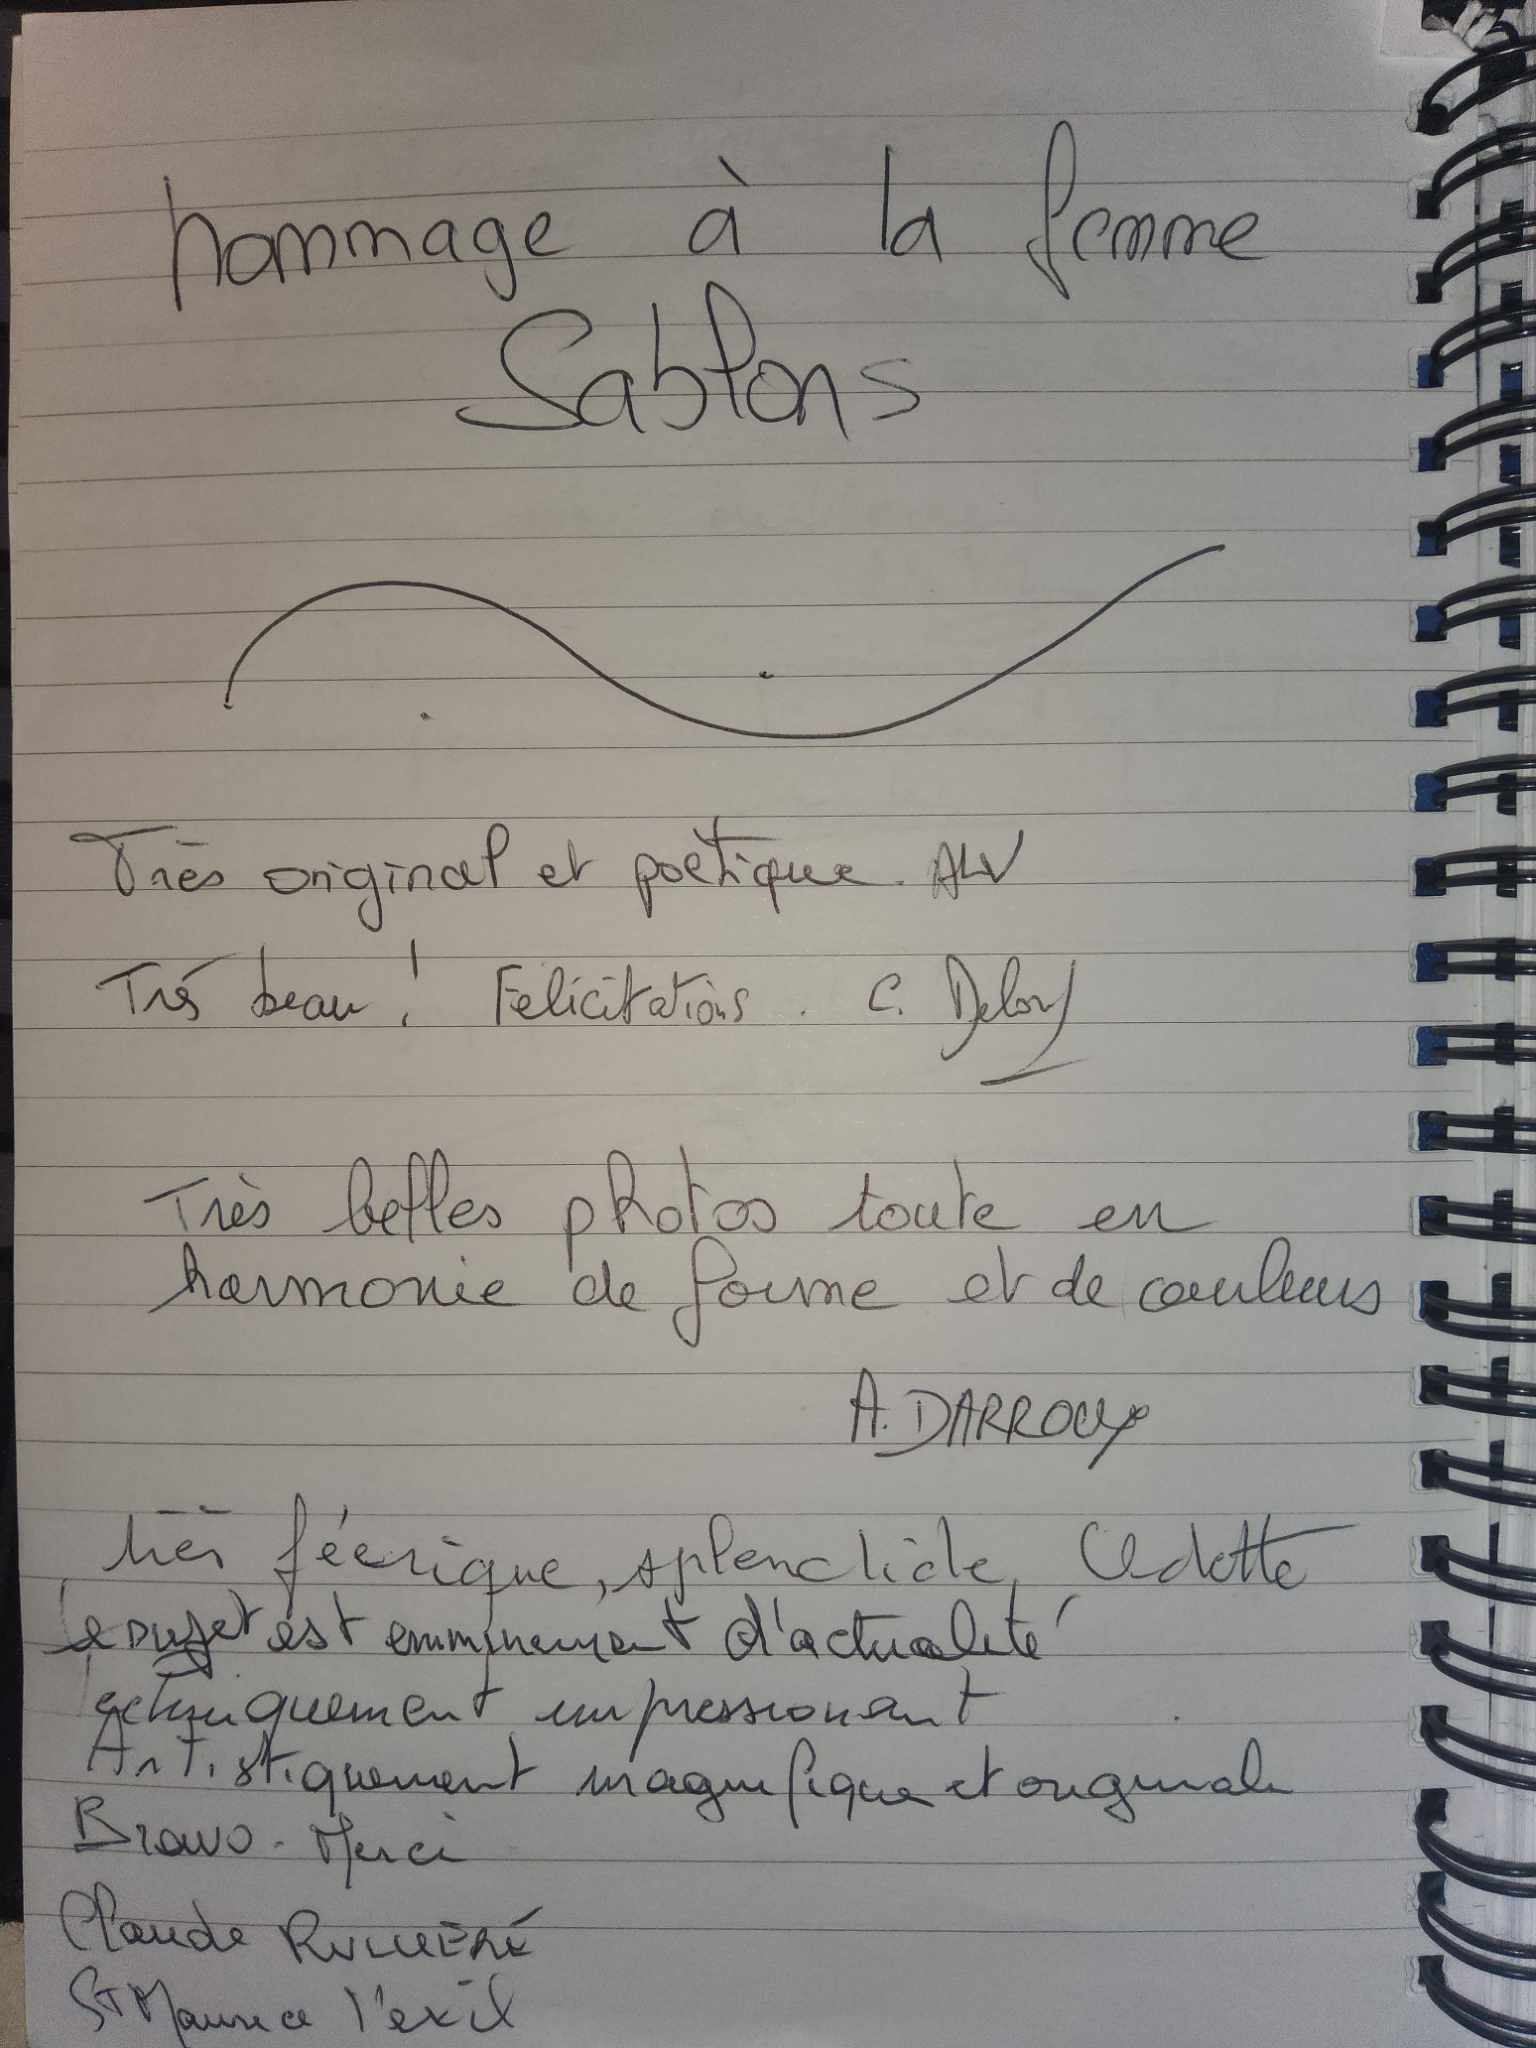 hommage à la femme
Sablons
Très original et poètique. ALV
Trés beau ! Felicitations . C.
Très belles photos toute en
harmonie de forme et de couleurs
A. DARROUX
très féerique, splendide, Odette
le sujet est emminement d'actualité
techniquement impressionant
Artistiquement magnifique et originale
Bravo - Merci
Claude
St Maurice l'exil